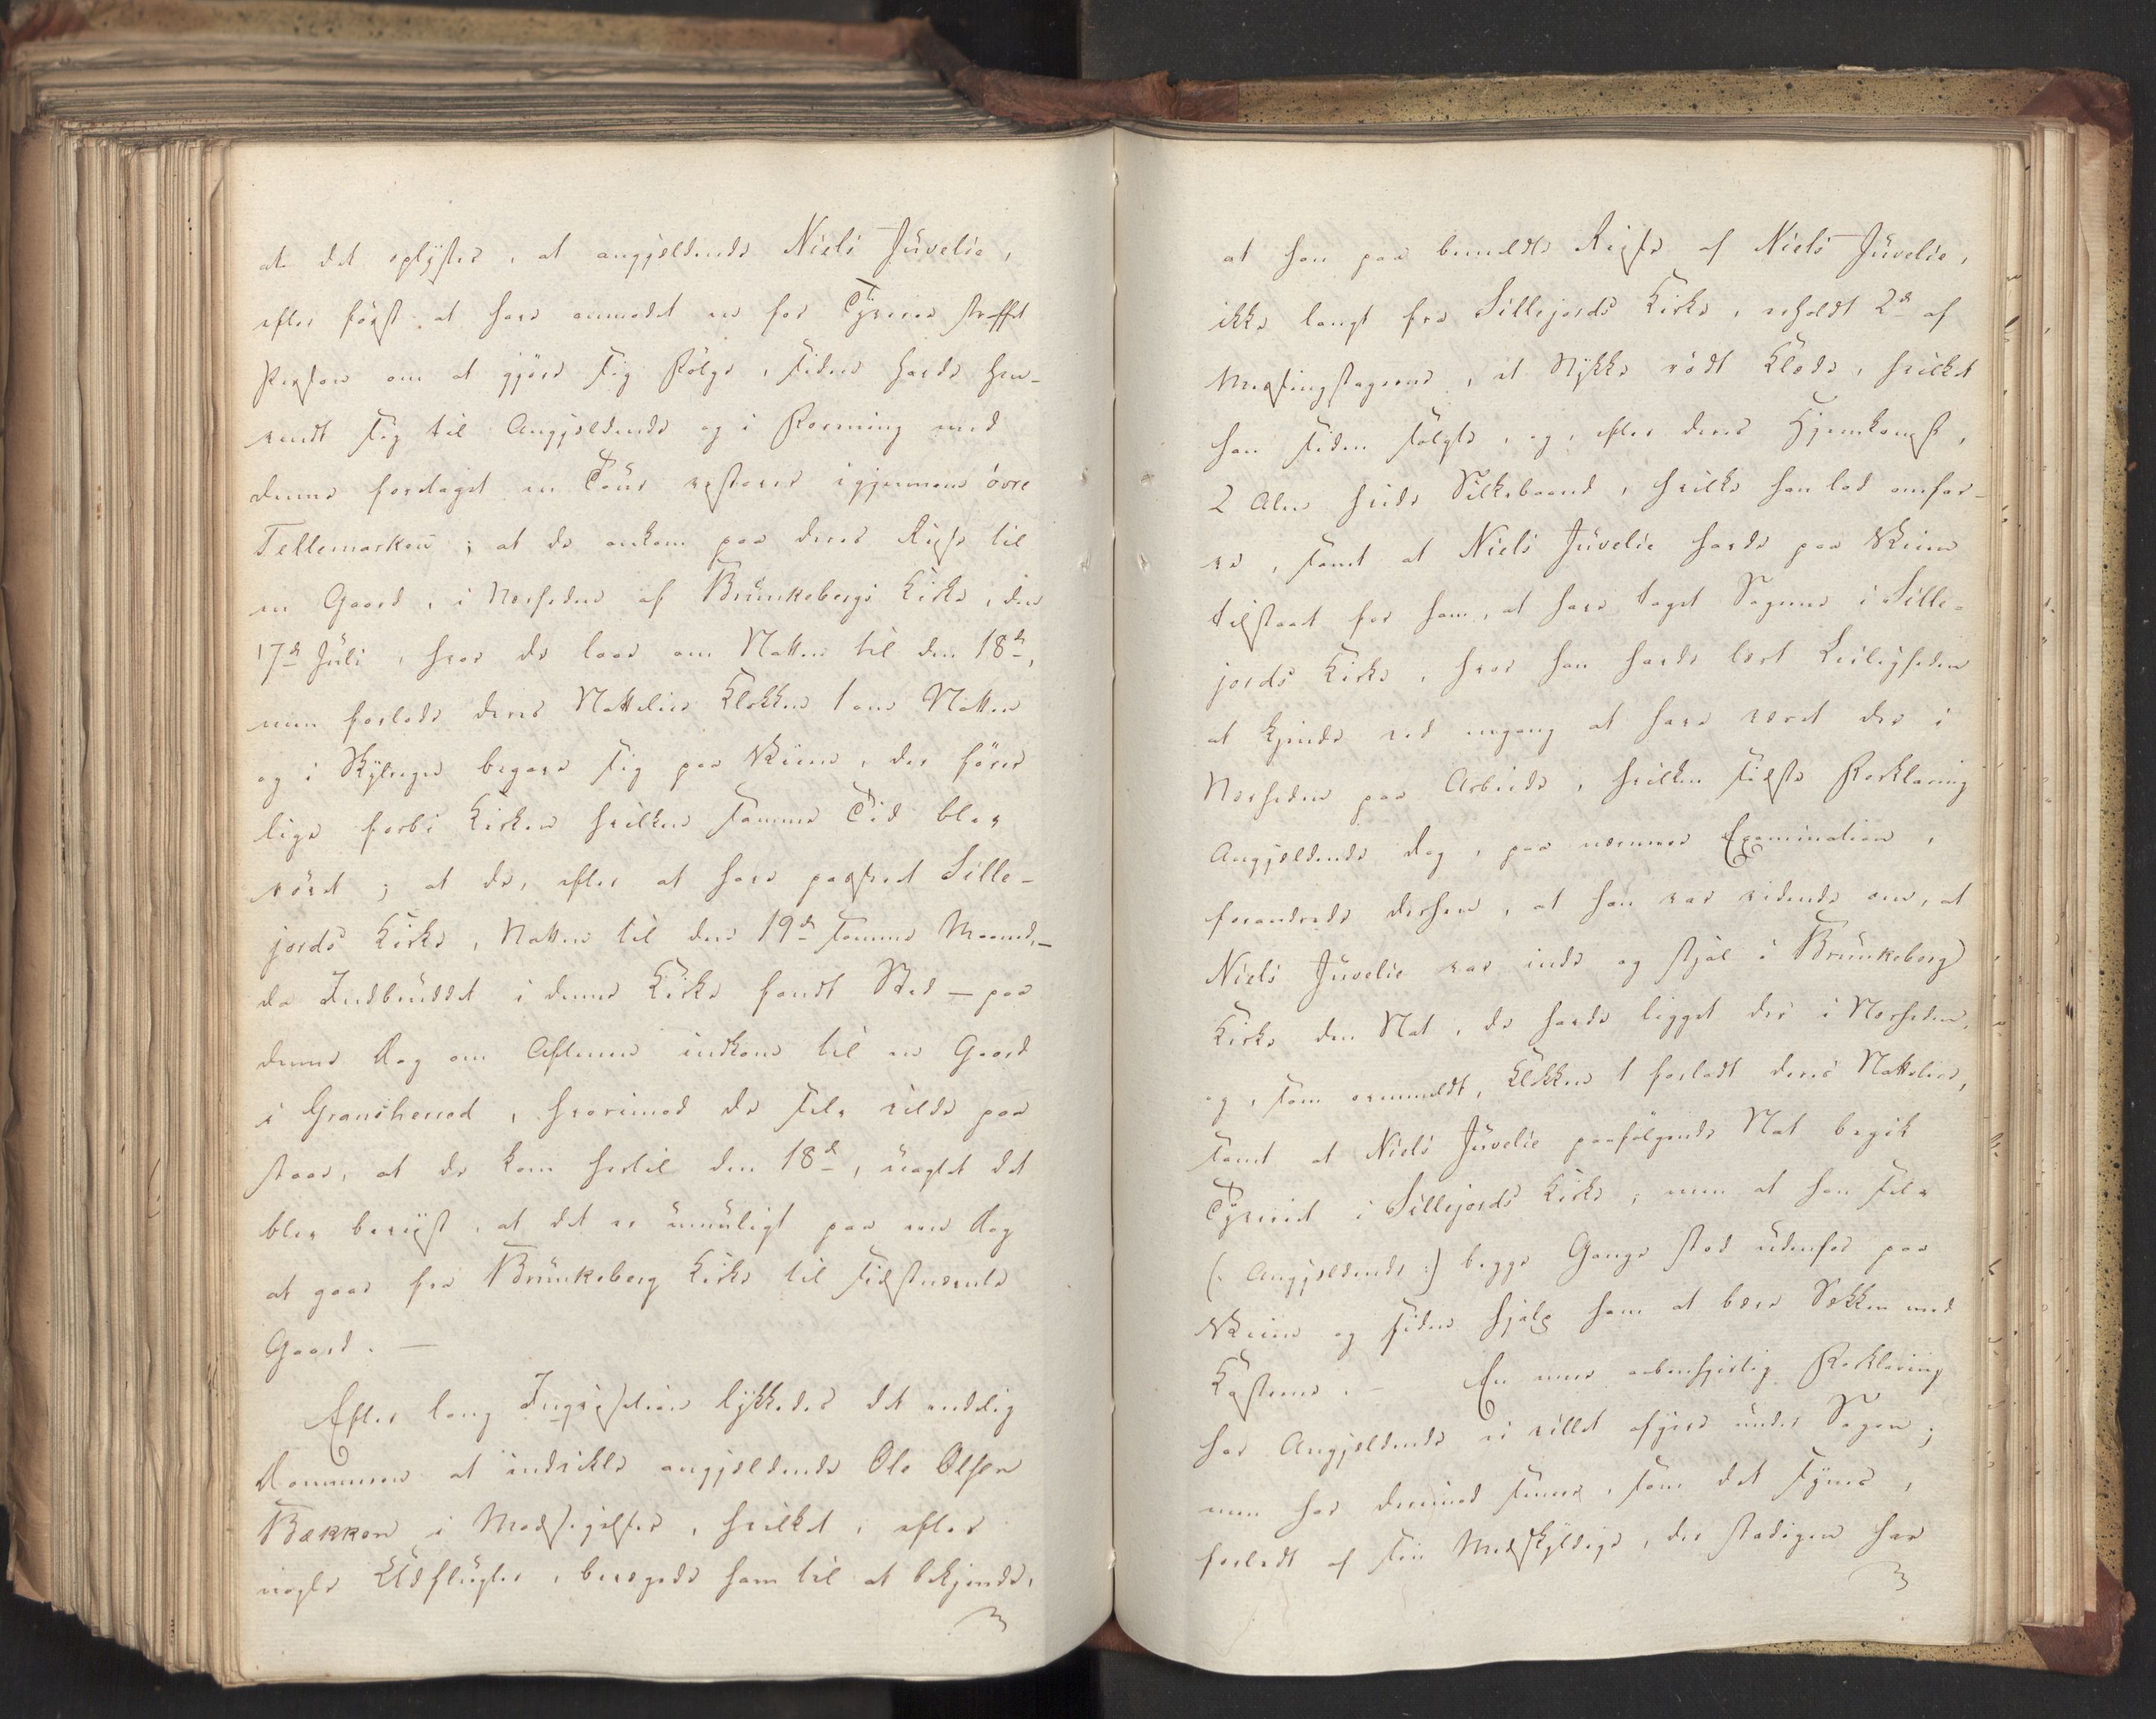 at det oplystes, at angjeldende Niels Juvelie,
efter først at have anmodet en for Tyverie straffet
Person om at gjøre sig Følge, siden havde hen-
vendt sig til Angjeldende og i Forening med
denne foretaget en Tour vestover igjennem övre
Tellemarken; at de ankom paa deres Reise til
en Gaard, i Nærheden af Brunkebergs Kirke, den
17de Juli, hvor de laae om Natten til den 18de,
men forlode deres Natteleie Klokken 1 om Natten
og i Følge begave sig paa Veien, der förer
lige forbi Kirken hvilken samme Tid blev
röret; at de, efter at have passeret Sille-
jords Kirke, Natten til den 19de samme Maaned, –
da Indbruddet i denne Kirke fandt Sted – paa
denne Dag om Aftenen indkom til en Gaard
i Gransherred, hvorimod de selv vilde paa
staae, at de kom hertil den 18de, uagtet det
blev beviist, at det er umuligt paa een Dag
at gaae fra Brunkeberg Kirke til sidstnævnte
Gaard. –
Efter lang Inqvisition lykkedes det endelig
Dommeren at indvikle angjeldende Ole Olsen
Bækken i Modsigelser, hvilket, efter
nogle Udflugter, bevægede ham til at bekjende,
at han paa bemeldte Reise af Niels Juvelie,
ikke langt fra Sillejords Kirke, erholdt 2de af
Messingstagerne, et Stykke rödt Klæde, hvilket
han siden solgte, og, efter deres Hjemkomst,
2 Alen hvide Silkebaand, hvilke han lod omfar-
ve, samt at Niels Juvelie havde paa Veien
tilstaaet for ham, at have taget Sagerne i Sille-
jords Kirke, hvor han havde lært Leiligheden
at kjende ved engang at have været der i
Nærheden paa Arbeide, hvilken sidste Forklaring
Angjeldende dog, paa nærmere Examination,
forandrede derhen, at han var vidende om, at
Niels Juvelie var inde og stjal i Brunkeberg
Kirke den Nat, de havde ligget der i Nærheden,
og, som ommeldt, Klokken 1 forladt deres Natteleie,
samt at Niels Juvelie paafølgende Nat begik
Tyveriet i Sillejords Kirke; men at han selv
(: Angjeldende :) begge Gange stod udenfor paa
Veien og siden hjalp ham at bære Sækken med
Kosterne. – En mere aabenhjertig Forklaring
har Angjeldende ei villet afgive under Sagen;
men har derimod, som det synes,
forledt af sin Medskyldige, der stadigen har